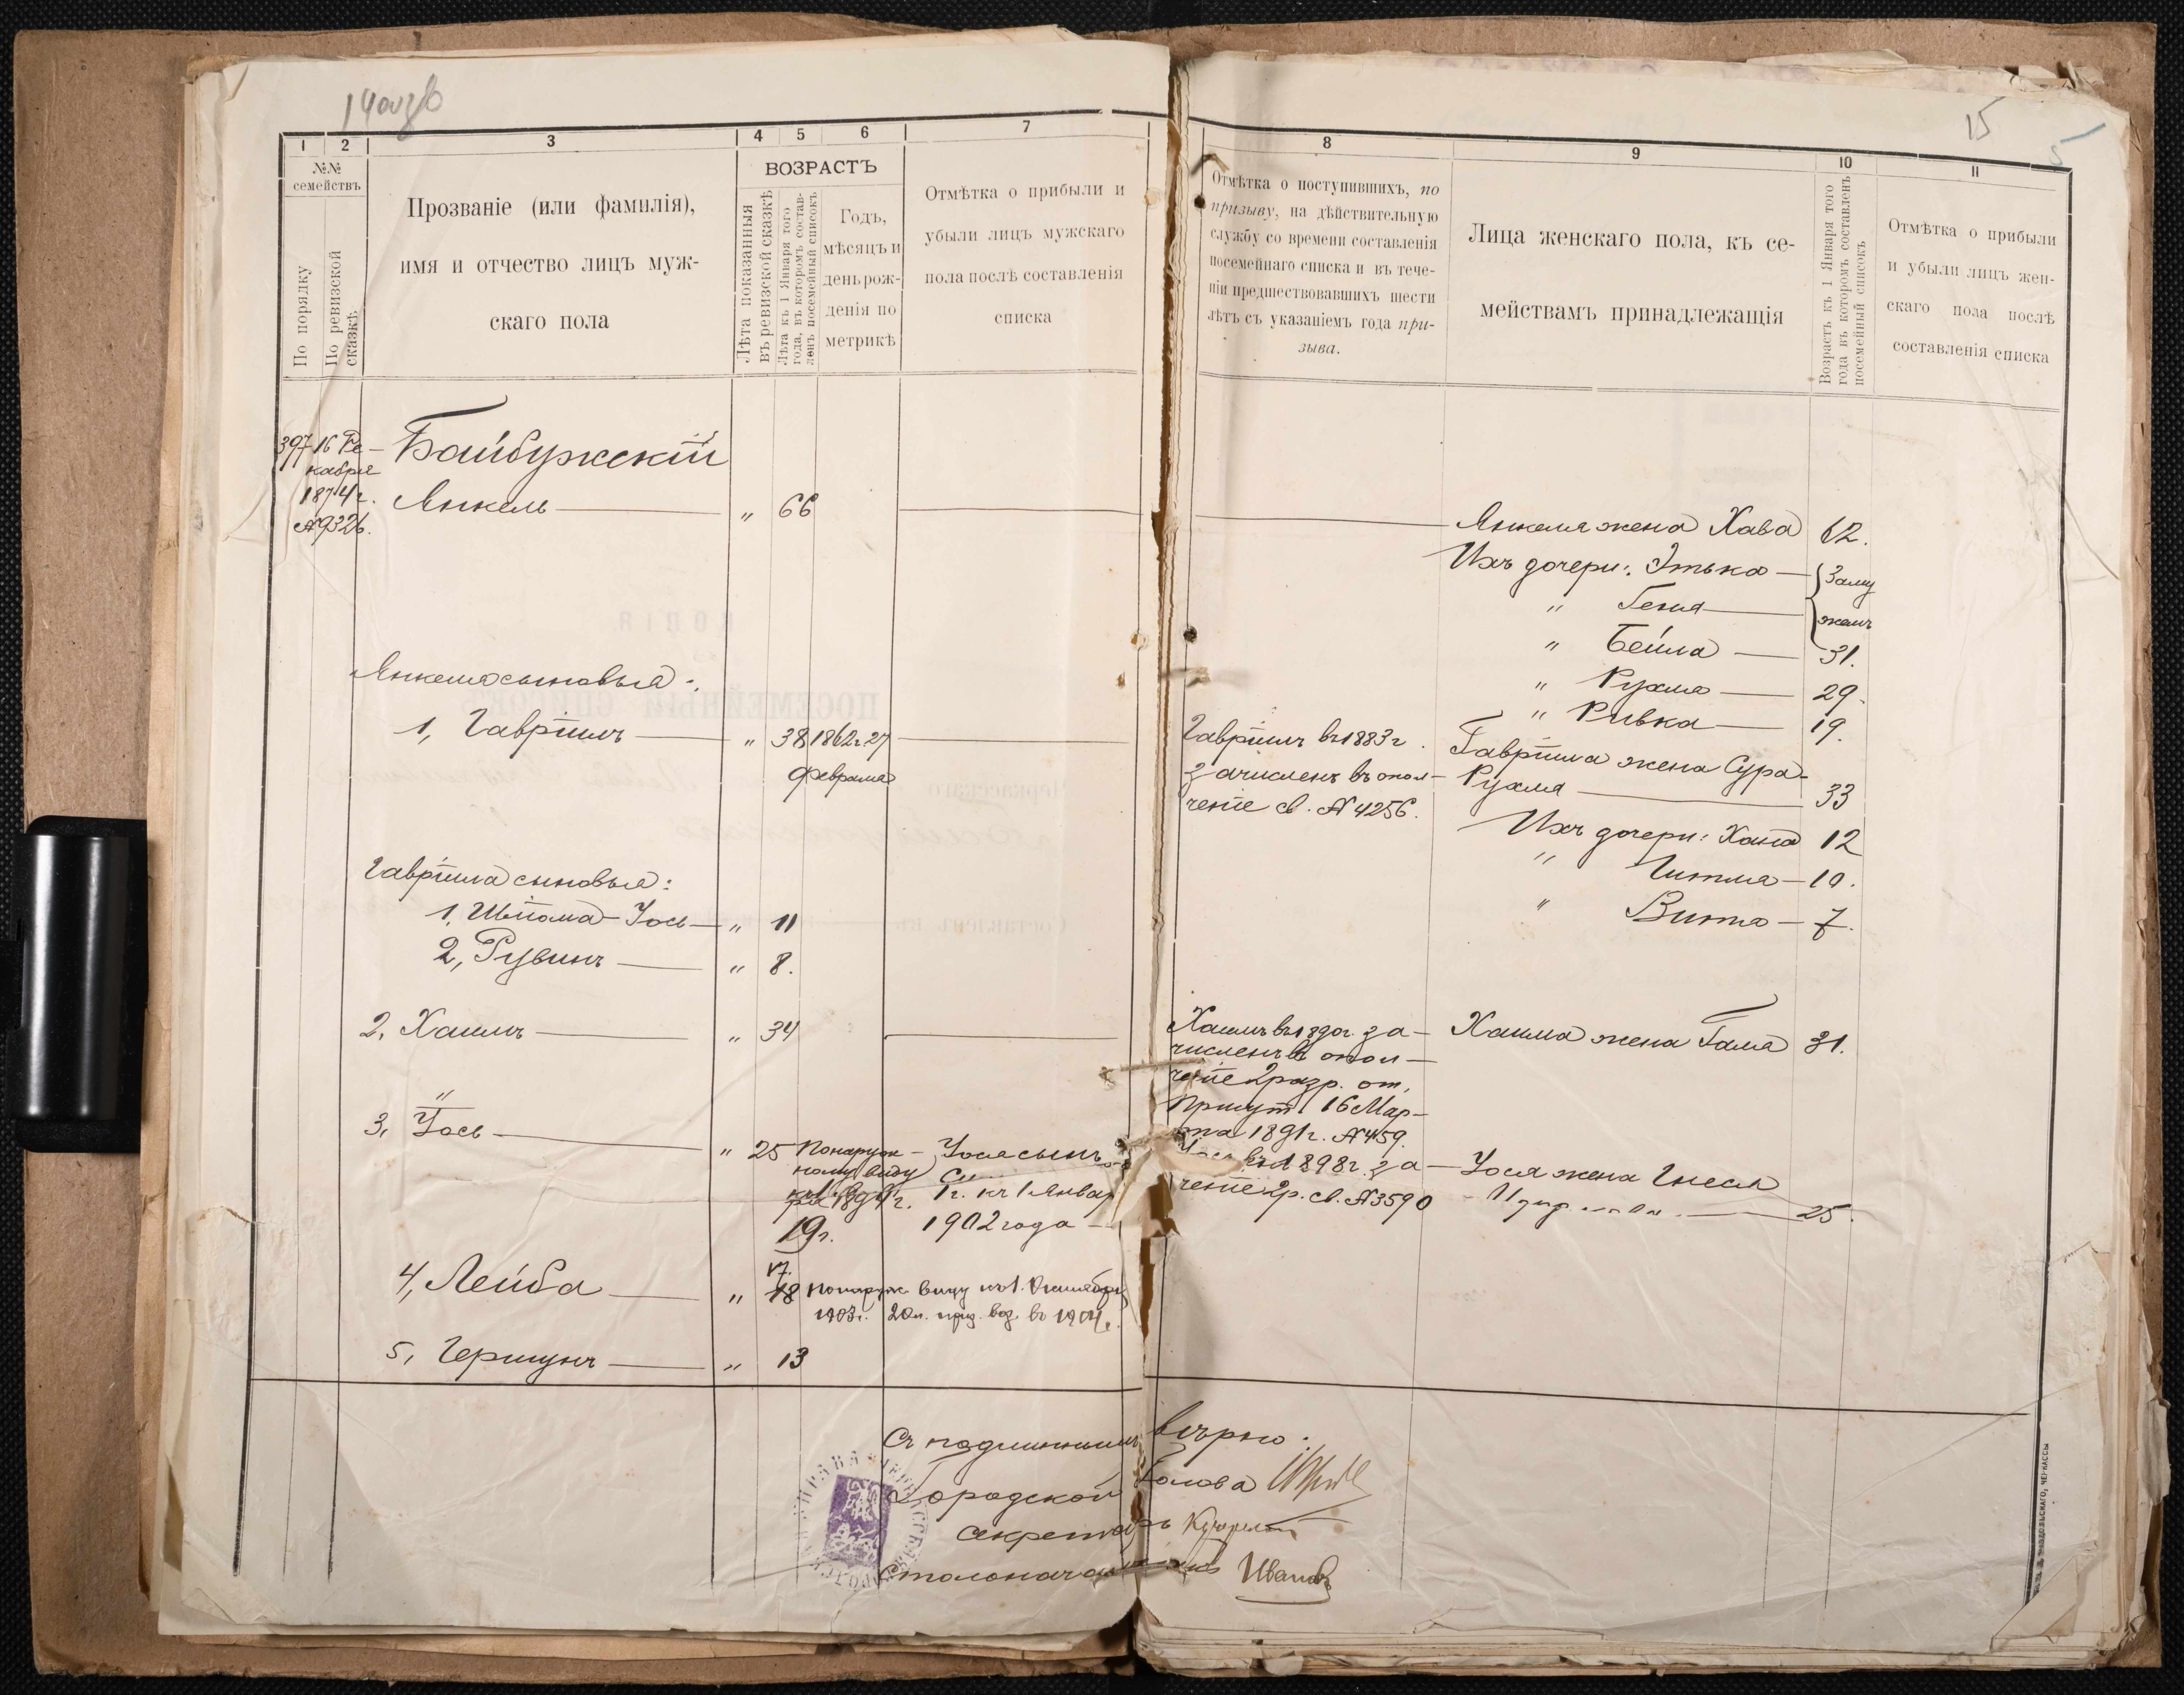 14 
15
5
1 2 3 4 5 6 7
№№ семействъ
По порядку
По ревизской сказкѣ
Прозваніе (или фамилія),
имя и отчество лицъ муж-
скаго пола
ВОЗРАСТЪ
Лѣта показанныя
въ ревизской сказкѣ
Лѣта къ 1 Января того
года, въ которомъ состав-
ленъ посемейный списокъ
Годъ,
мѣсяцъ и
день рож-
денія по
метрикѣ
Отмѣтка о прибыли и
убыли лицъ мужскаго
пола послѣ составленія
списка
8 9 10 11
Отмѣтка о поступившихъ, по
призыву, на дѣйствительную
службу со времени составленія
посемейнаго списка и въ тече-
ніи предшествовавшихъ шести
лѣтъ съ указаніемъ года при-
зыва.
Лица женскаго пола, къ се-
мействамъ принадлежащія
Возрастъ къ 1 Января того
года въ которомъ составленъ
посемейный списокъ
Отмѣтка о прибыли
и убыли лицъ жен-
скаго пола послѣ
составленія списка
397 16 Де-
кабря
1874 г.
№9326.
Байбужскій
Янкель — „ 66
Янкеля сыновья:
1, Гавріилъ — „ 38 1862 г. 27
февраля
Гавріила сыновья:
1, Шліома-Іось — „ 11
2, Рувинъ — „ 8.
2, Хаимъ — „ 34
3, Іось — „ 25 По наруж- Іося сынъ
ному виду
къ 1 Янва- 1 г. къ 1 Январ
ря 1891 г. 1902 года —
19 г.
17.
4, Лейба — „ 18 по наруж. виду къ 1. Октября
1903 г. 20 л. приз. воз. въ 1904 г.
5, Гершунъ — „ 13
Янкеля жена Хава 62.
Ихъ дочери: Этька — } Заму
„ Геня — } жемъ
„ Бейла — 31.
„ Рухля — 29.
„ Ривка — 19.
Гавріилъ въ 1883 г.
зачисленъ въ опол-
ченіе св. №4256.
Гавріила жена Сура-
Рухля — 33
Ихъ дочери: Хана 12
„ Гитля — 10.
„ Вита — 7.
Хаимъ въ 1890 г. за-
численъ въ опол-
ченіе 2 разр. от.
Присут. 16 Мар-
та 1891 г. №459.
Хаима жена Галя 31.
Іось въ 1898 г. за-
ченіе 2 р. св. №3590
Іося жена Гнеся
25.
Съ подлиннымъ вѣрно:
Городской Голова
Секретарь
Столоначальникъ Ивановъ